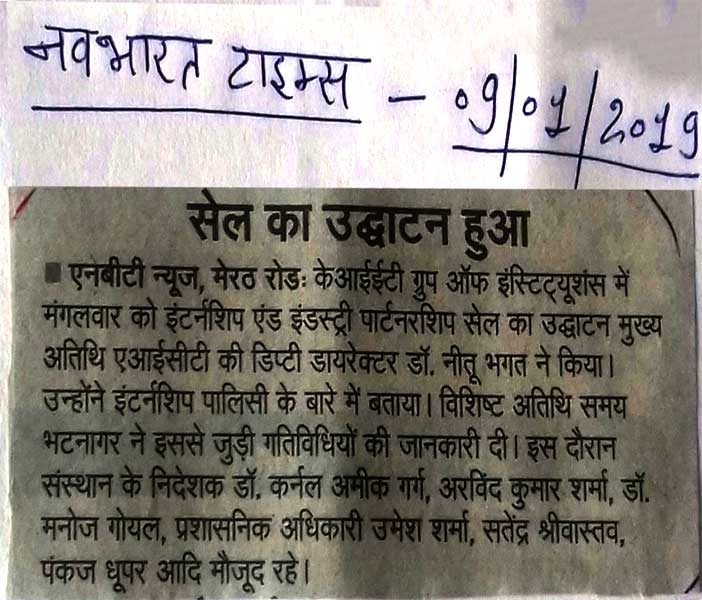 नवभारत टाइम्स – 09/01/2019
सेल का उद्घाटन हुआ
■ एनबीटी न्यूज, मेरठ रोड: केआईईटी ग्रुप ऑफ इंस्टिट्यूशंस में
मंगलवार को इंटर्नशिप एंड इंडस्ट्री पार्टनरशिप सेल का उद्घाटन मुख्य
अतिथि एआईसीटी की डिप्टी डायरेक्टर डॉ. नीतू भगत ने किया।
उन्होंने इंटर्नशिप पालिसी के बारे में बताया। विशिष्ट अतिथि समय
भटनागर ने इससे जुड़ी गतिविधियों की जानकारी दी। इस दौरान
संस्थान के निदेशक डॉ. कर्नल अमीक गर्ग, अरविंद कुमार शर्मा, डॉ.
मनोज गोयल, प्रशासनिक अधिकारी उमेश शर्मा, सतेंद्र श्रीवास्तव,
पंकज धूपर आदि मौजूद रहे।